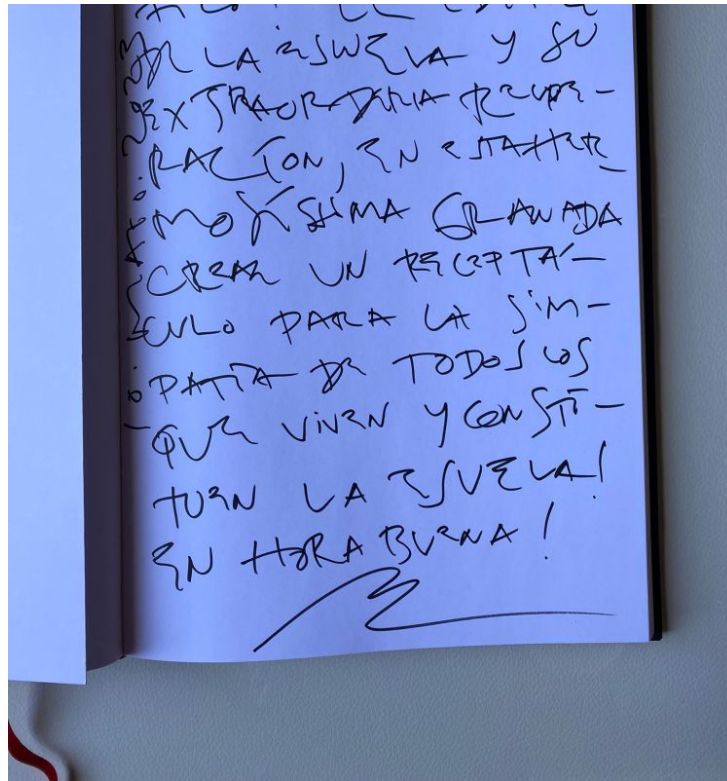 DE LA ESCUELA Y SU
EXTRAORDINARIA RECUPE-
RACIÓN, EN ESTA HER-
MOSÍSIMA GRANADA
CREAR UN RECEPTÁ-
CULO PARA LA SIM-
PATÍA DE TODOS LOS
QUE VIVEN Y CONSTI-
TUEN LA ESUELA!
EN HORABUENA!